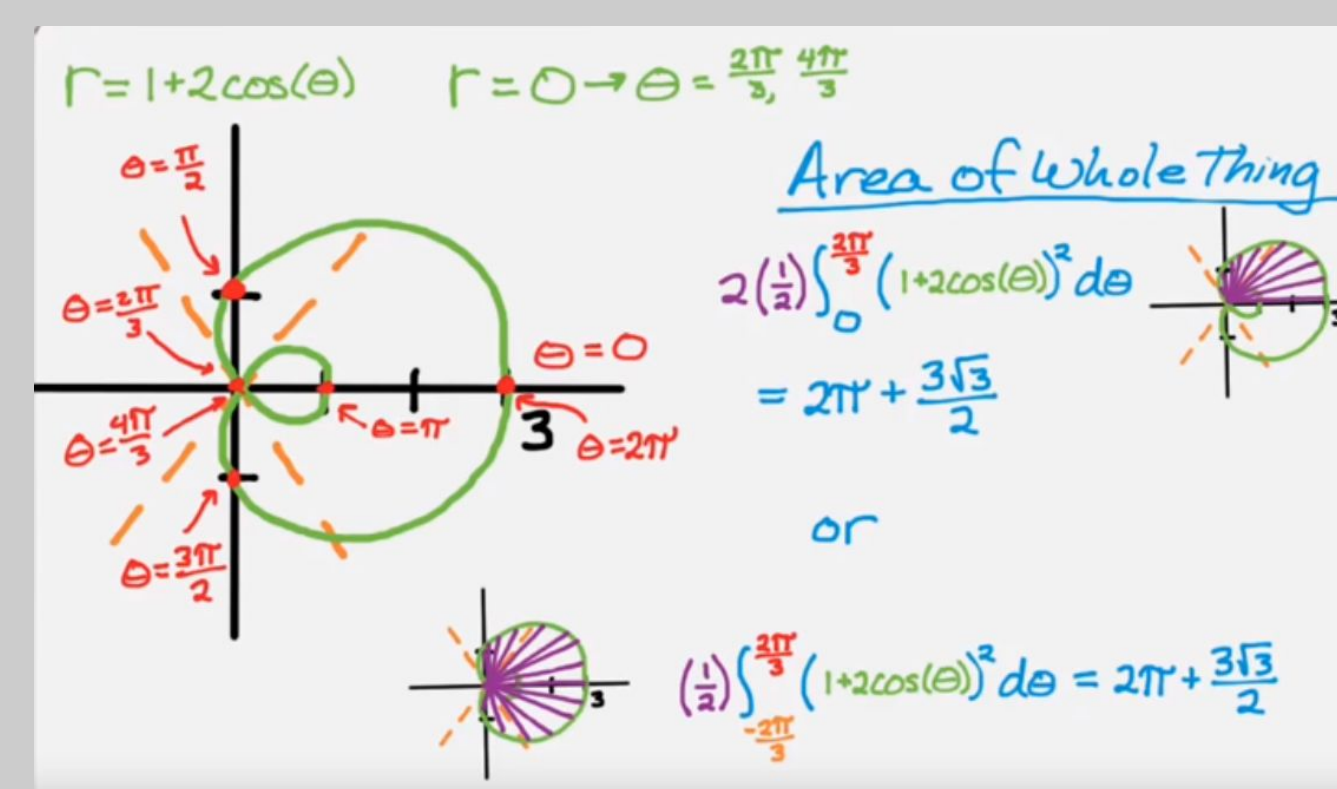 r = 1+2cos(θ)
r = 0 → θ = 2π/3, 4π/3
θ = π/2
θ = 2π/3
θ = 4π/3
θ = 3π/2
θ = π
θ = 0
3
θ = 2π
Area of Whole Thing
2(1/2) ∫_0^{2π/3} (1+2cos(θ))² dθ
3
= 2π + 3√3/2
or
3
(1/2) ∫_{-2π/3}^{2π/3} (1+2cos(θ))² dθ = 2π + 3√3/2